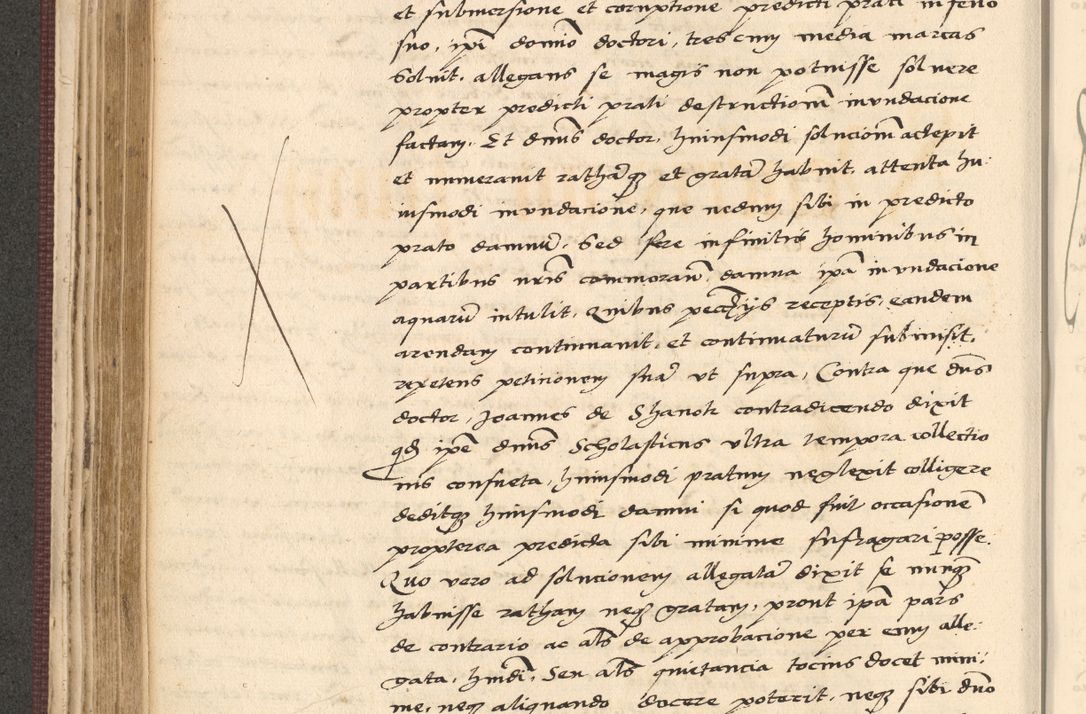 et submersione et corruptione predicti prati in feno
suo, ipĩ domĩo doctori, tres cum media marcas
Solvit. allegans se magis non potuisse solvere
propter predicti prati destructionẽ inundacione
factam. Et dñus doctor, huiusmodi solucionẽ accepit
et numeravit rathãqȝ et gratã habuit. attenta hu-
iusmodi inundacione, que nedum sibi in predicto
prato damnũ. Sed fere infinitis hominibus in
partibus nr̃is commorañ. damna ipã inundacione
aquarũ intulit. Quibus pecũijs receptis, eandem
arendam continuavit, et continuaturũ submisit.
repetens peticionem suã ut supra, Contra que dñs
doctor, Joannes de Shanok contradicendo dixit
qđ ipẽ dñus Scholasticus ultra tempora collectio
nis consueta, huiusmodi pratum neglexit colligere
deditqȝ huiusmodi damni si quod fuit occasionẽ
propterea predicta sibi minime suffragari posse.
Quo vero ad solucionem allegatã dixit se nunqȝ
habuisse ratham neqȝ gratam, prout ipã pars
de contrario ac als̃ de approbacione per eum alle-
gata, hmđi. Seu als̃ quietancia tocius docet mini-
me, neqȝ aliquando docere poterit, neqȝ sibi dño